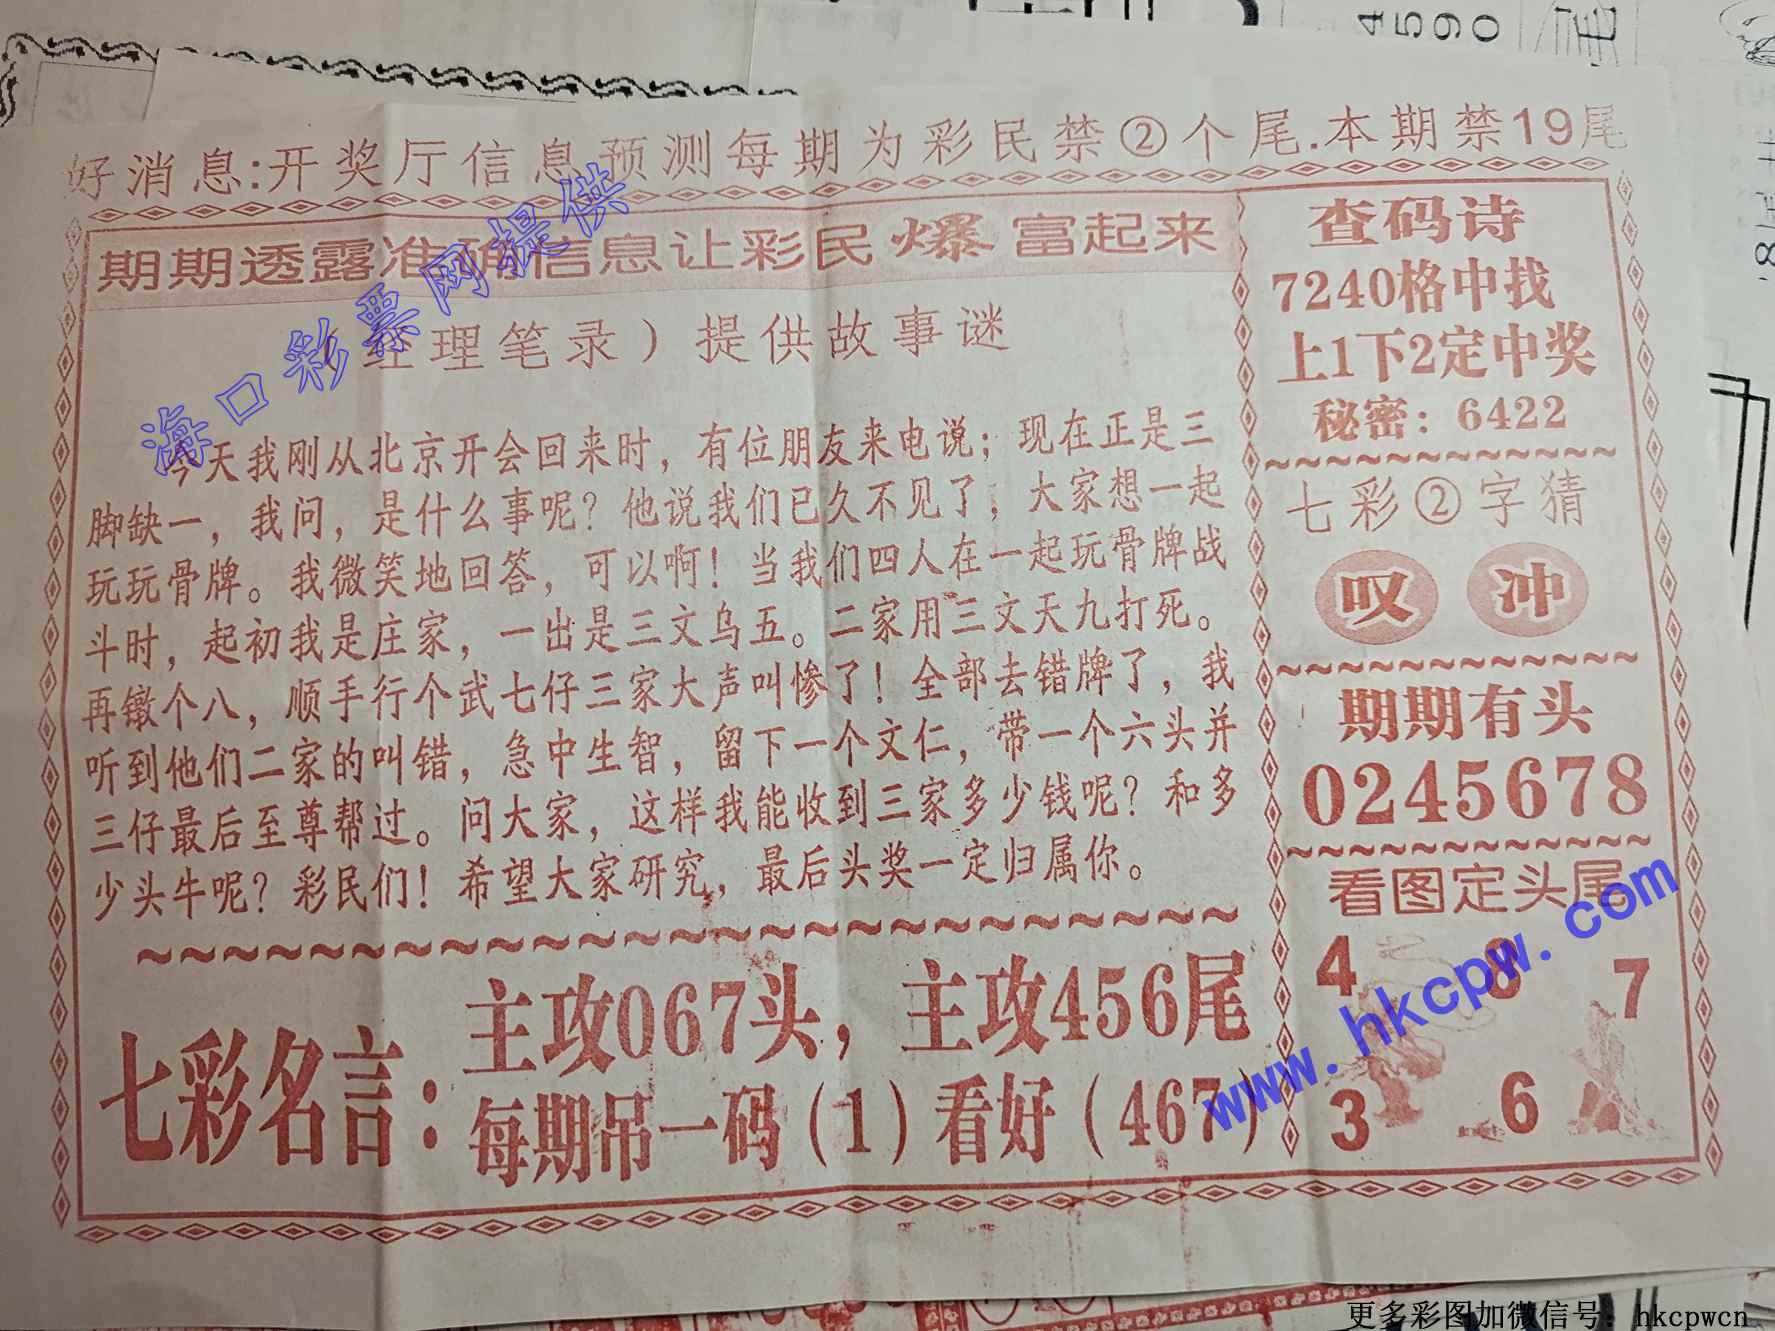 4590
好消息:开奖厅信息预测每期为彩民禁②个尾.本期禁19尾
期期透露准确信息让彩民爆富起来
（经理笔录）提供故事谜
今天我刚从北京开会回来时，有位朋友来电说；现在正是三
脚缺一，我问，是什么事呢？他说我们已久不见了；大家想一起
玩玩骨牌。我微笑地回答，可以啊！当我们四人在一起玩骨牌战
斗时，起初我是庄家，一出是三文乌五。二家用三文天九打死。
再镦个八，顺手行个武七仔三家大声叫惨了！全部去错牌了，我
听到他们二家的叫错，急中生智，留下一个文仁，带一个六头并
三仔最后至尊帮过。问大家，这样我能收到三家多少钱呢？和多
少头牛呢？彩民们！希望大家研究，最后头奖一定归属你。
七彩名言：
主攻067头，主攻456尾
每期吊一码（1）看好（467）
查码诗
7240格中找
上1下2定中奖
秘密：6422
七彩②字猜
叹 冲
期期有头
0245678
看图定头尾
4 8 7
3 6
海口彩票网提供
www.hkcpw.com
更多彩图加微信号：hkcpwcn